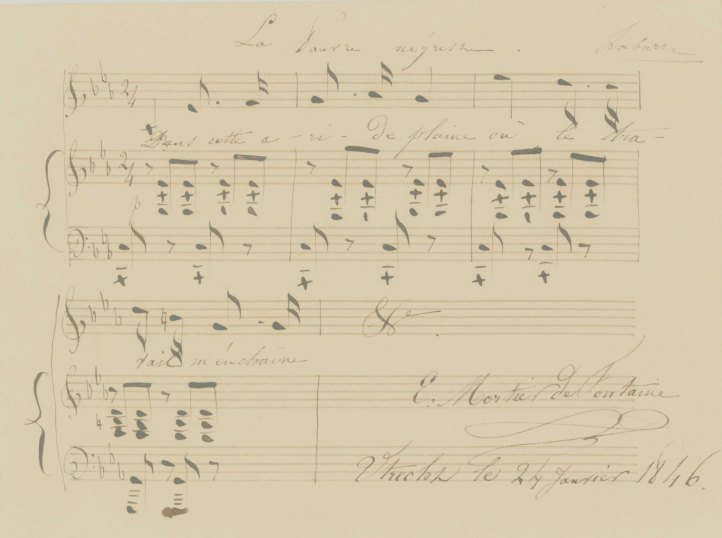 La Pauvre négresse. Labarre
2/4
Dans cette a-ri-de plaine où le tra-
2/4
p
vail m'enchaîne
&c.
E. Mortier de Fontaine
Utrecht le 24 Janvier 1846.